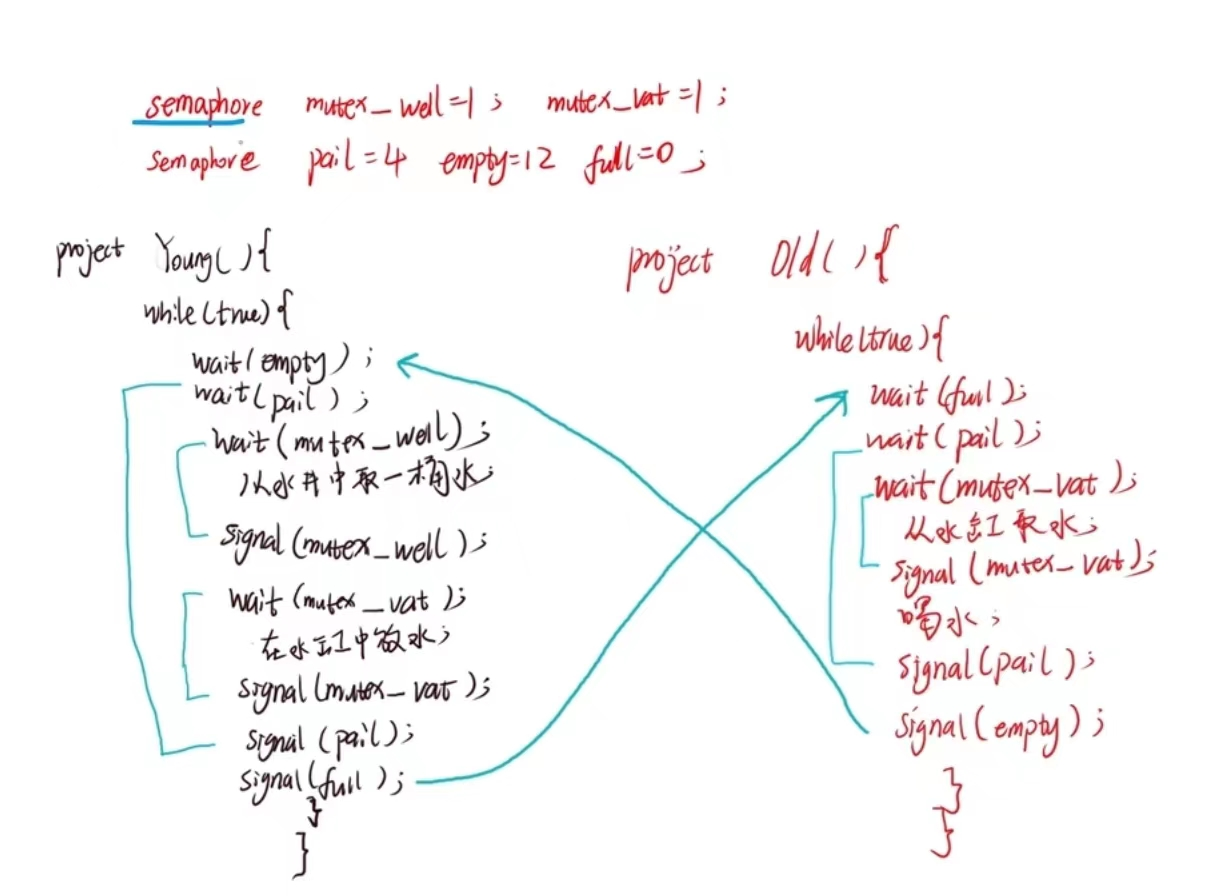 semaphore mutex_well=1; mutex_vat=1;
semaphore pail=4 empty=12 full=0;
project Young(){
while(true){
wait(empty);
wait(pail);
wait(mutex_well);
从水井中取一桶水;
signal(mutex_well);
wait(mutex_vat);
在水缸中放水;
signal(mutex_vat);
signal(pail);
signal(full);
}
}
project Old(){
while(true){
wait(full);
wait(pail);
wait(mutex_vat);
从水缸取水;
signal(mutex_vat);
喝水;
signal(pail);
signal(empty);
}
}